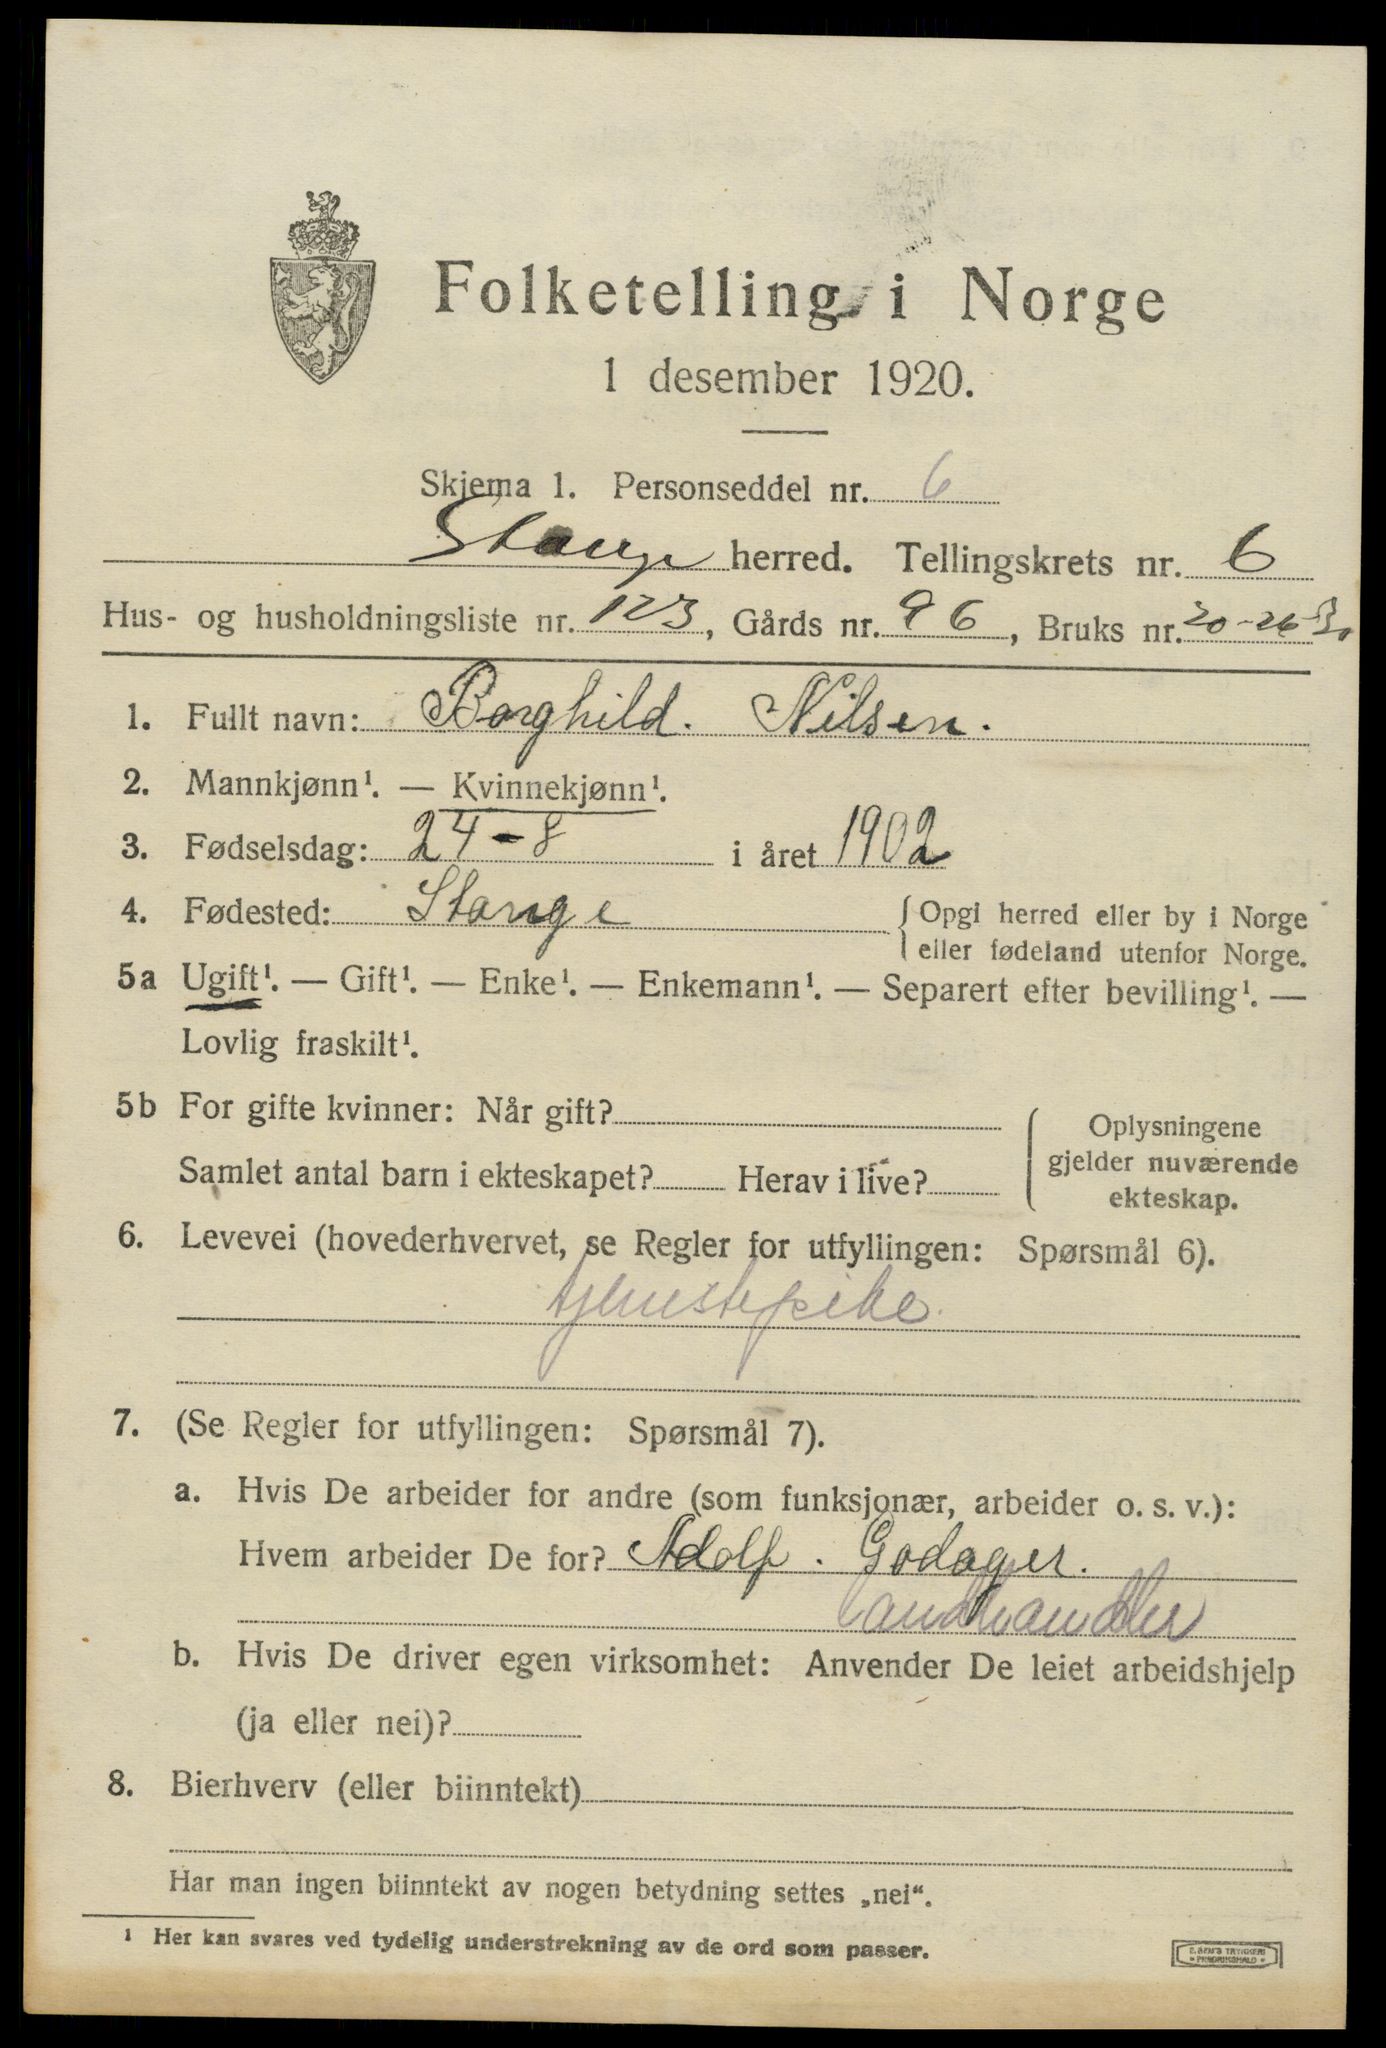 Folketelling i Norge
1 desember 1920.
Skjema 1. Personseddel nr. 6
Stange herred. Tellingskrets nr. 6
Hus- og husholdningsliste nr. 123, Gårds nr. 96, Bruks nr. 20-26
1. Fullt navn: Borghild. Nilsen.
2. Mannkjønn¹. — Kvinnekjønn¹.
3. Fødselsdag: 24-8 i året 1902
4. Fødested: Stange { Opgi herred eller by i Norge
eller fødeland utenfor Norge.
5a Ugift¹. — Gift¹. — Enke¹. — Enkemann¹. — Separert efter bevilling¹. —
Lovlig fraskilt¹.
5b For gifte kvinner: Når gift?
Samlet antal barn i ekteskapet? Herav i live?
Oplysningene
gjelder nuværende
ekteskap.
6. Levevei (hovederhvervet, se Regler for utfyllingen: Spørsmål 6).
tjenestepike
7. (Se Regler for utfyllingen: Spørsmål 7).
a. Hvis De arbeider for andre (som funksjonær, arbeider o. s. v.):
Hvem arbeider De for? Adolf. Godager.
Landhandler
b. Hvis De driver egen virksomhet: Anvender De leiet arbeidshjelp
(ja eller nei)?
8. Bierhverv (eller biinntekt)
Har man ingen biinntekt av nogen betydning settes „nei“.
¹ Her kan svares ved tydelig understrekning av de ord som passer.
E. SEM'S TRYKKERI
• FREDRIKSHALD •